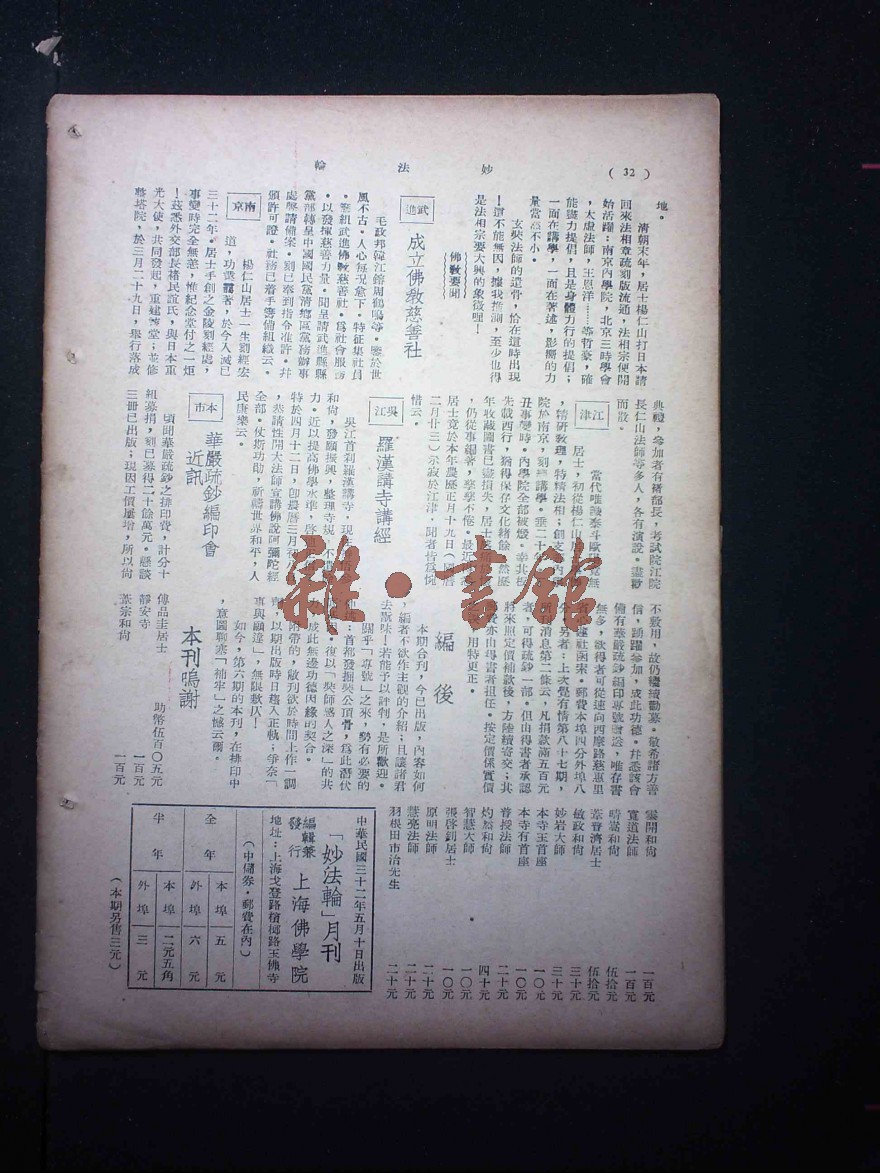 ( 32 )
妙法輪
地。
清朝末年，居士楊仁山打日本請
回來法相章疏刻版流通，法相宗便開
始活躍；南京內學院，北京三時學會
，太虛法師，王恩洋……等哲豪，確
能盡力提倡，且是身體力行的提倡；
一面在講學，一面在著述，影響的力
量當然不小。
玄奘法師的遺骨，恰在這時出現
！這不能無因，據我推測，至少也得
是法相宗要大興的象徵哩！
佛敎要聞
武進
成立佛敎慈善社
毛政邦韓江鎔周鶴鳴等。鑒於世
風不古。人心每況愈下。特征集社員
。籌組武進佛敎慈善社。爲社會服務
。以發揮慈善力量。聞呈請武進縣縣
黨部轉呈中國國民黨淸鄉區黨務辦事
處聲請備案。刻已奉到指令准許。幷
頒許可證。社務已着手籌備組織云。
南京
楊仁山居士一生刻經宏
道，功業靄著，於今入滅已
三十二年。居士手創之金陵刻經處，
事變時完全無恙，惟紀念堂付之一炬
！茲悉外交部長褚民誼氏，與日本重
光大使，共同發起，重建祠堂；並修
整塔院，於三月二十九日，舉行落成
典禮，參加者有褚部長，考試院江院
長仁山法師等多人，各有演說。盡歡
而散。
江津
當代唯識泰斗歐陽竟無
居士，初從楊仁山居士
，精研敎理，特精法相；創支那內學
院於南京，刻經講學。垂二十
丑事變時。內學院全部被燬。幸其板
先載西行，猶得保存文化緖餘。然歷
年收藏圖書已盡損失，居士
，仍從事編著，孳孳不倦。最近
居士竟於本年農歷正月十九日（國曆
二月廿三）示寂於江津，聞者皆爲惋
惜云。
吳江
羅漢講寺講經
吳江首利羅漢講寺，現
和尙，發願振興，整理寺規，不
力。近以提高佛學水準，啓
特於四月十二日，卽農曆三月初八
，恭請性開大法師宣講佛說阿彌陀經
全部。仗斯功勛，祈禱世界和平，人
民康樂云。
本市
華嚴疏鈔編印會
近訊
頃聞華嚴疏鈔之排印費，計分十
組募捐，刻已募得二十餘萬元。懸談
三册已出版；現因工價屢增，所以尙
不敷用，故仍繼續勸募。敬希諸方善
信，踴躍參加，成此功德。幷悉該會
備有華嚴疏鈔編印專號奇送，唯存書
無多，欲得者可從速向西摩路慈惠里
省心蓮社函索。郵費本埠四分外埠八
分。另者：上次覺有情第八十七期，
所刊消息第二條云，凡捐款滿五百元
者，可得疏鈔一部。但由得書者承認
將來照定價補款後，方陸續寄交；其
郵費亦由得書者担任。按定價係實價
之誤用特更正。
編後
本期合刊，今已出版，內容如何
，編者不欲作主觀的介紹；且讓諸君
去翫味！若能予以評判，是所歡迎。
關乎「專號」之來，勢有必要的
：首都發掘奘公頂骨，爲此潛伏
。復以「奘師感人之深」的共
成此無邊功德因緣的契合。
附帶的，敝刋欲於時間上作一調
齊，以期出版時日趨入正軌；爭奈「
事與願違」，無限歎仄！
如今，第六期的本刋，在排印中
，意圖聊塞「補牢」之憾云爾。
本刊鳴謝
傅品圭居士 助幣伍百〇五元
靜安寺 一百元
葦宗和尙 一百元
雲開和尙 一百元
寬道法師 一百元
時嵩和尙 伍拾元
葦眷濟居士 伍拾元
敏政和尙 三十元
妙岩大師 三十元
本寺王首座 一〇元
本寺有首座 一〇元
普授法師 二十元
灼然和尙 四十元
智慧大師 一〇元
張啓釗居士 一〇元
原明法師 二十元
慧亮法師 二十元
羽根田市治先生 二十元
中華民國三十二年五月十日出版
「妙法輪」月刊
編輯兼發行
上海佛學院
地址：上海戈登路檳榔路玉佛寺
（中儲券。郵費在內）
全年
本埠 五元
外埠 六元
半年
本埠 二元五角
外埠 三元
（本期另售三元）
雜·書館